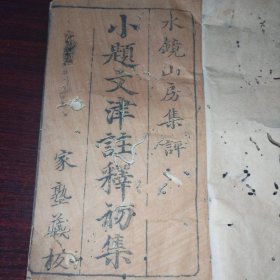 水鏡山房集評
小題文津註釋初集
家塾藏板